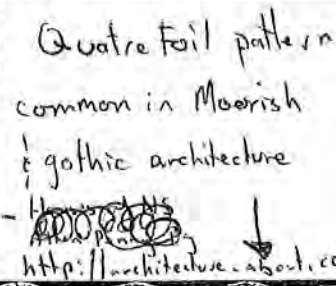 Quatre Foil pattern
common in Moorish
& gothic architecture
http://architecture.about.co